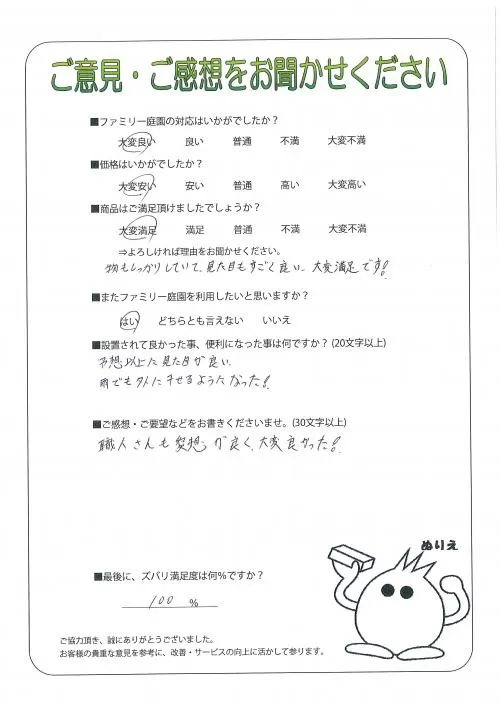 ご意見・ご感想をお聞かせください
■ファミリー庭園の対応はいかがでしたか?
大変良い 良い 普通 不満 大変不満
■価格はいかがでしたか?
大変安い 安い 普通 高い 大変高い
■商品はご満足頂けましたでしょうか?
大変満足 満足 普通 不満 大変不満
⇒よろしければ理由をお聞かせください。
物もしっかりしていて、見た目もすごく良い、大変満足です!
■またファミリー庭園を利用したいと思いますか?
はい どちらとも言えない いいえ
■設置されて良かった事、便利になった事は何ですか?(20文字以上)
予想以上に見た目が良い。
雨でも外に干せるようになった!
■ご感想・ご要望などをお書きくださいませ。(30文字以上)
職人さんも愛想が良く、大変良かった!
ぬりえ
■最後に、ズバリ満足度は何%ですか?
100 %
ご協力頂き、誠にありがとうございました。
お客様の貴重な意見を参考に、改善・サービスの向上に活かして参ります。